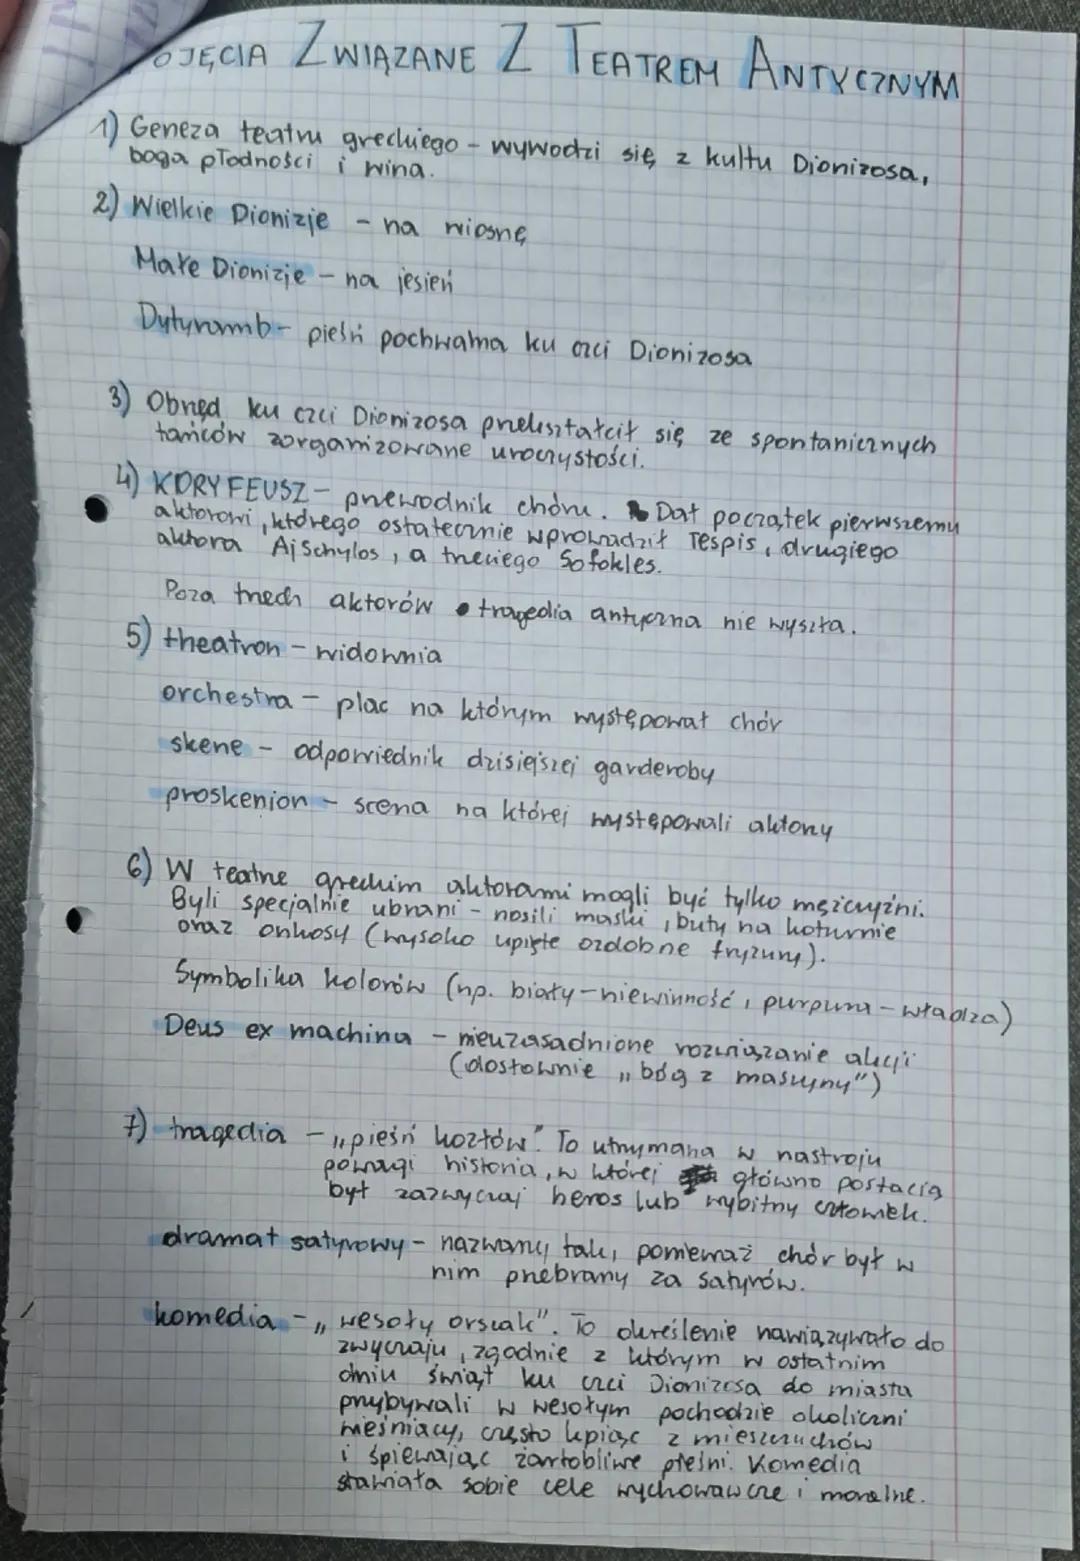 POJĘCIA ZWIĄZANE Z TEATREM ANTYCZNYM
1) Geneza teatru greckiego - wywodzi się z kultu Dionizosa,
boga płodności i wina.
2) Wielkie Dionizje - na wiosnę
Małe Dionizje - na jesień
Dytyramb - pieśń pochwalna ku czci Dionizosa
3) Obrzęd ku czci Dionizosa przekształcił się ze spontanicznych
tańców zorganizowane uroczystości.
4) KORYFEUSZ - przewodnik chóru. Dał początek pierwszemu
aktorowi, którego ostatecznie wprowadził Tespis, drugiego
aktora Ajschylos, a trzeciego Sofokles.
Poza trzech aktorów tragedia antyczna nie wyszła.
5) theatron - widownia
orchestra - plac na którym występował chór
skene - odpowiednik dzisiejszej garderoby
proskenion - scena na której występowali aktorzy
6) W teatrze greckim aktorami mogli być tylko mężczyźni.
Byli specjalnie ubrani - nosili maski, buty na koturnie
oraz onkosy (wysoko upięte ozdobne fryzury).
Symbolika kolorów (np. biały - niewinność, purpura - władza)
Deus ex machina - nieuzasadnione rozwiązanie akcji
(dosłownie „bóg z maszyny")
7) tragedia - „pieśń kozłów". To utrzymana w nastroju
powagi historia, w której główno postacią
był zazwyczaj heros lub wybitny człowiek.
dramat satyrowy - nazwany tak, ponieważ chór był w
nim przebrany za satyrów.
komedia - „wesoły orszak". To określenie nawiązywało do
zwyczaju, zgodnie z którym w ostatnim
dniu świąt ku czci Dionizosa do miasta
przybywali w wesołym pochodzie okoliczni
wieśniacy, często kpiąc z mieszczuchów
i śpiewając żartobliwe pieśni. Komedia
stawiała sobie cele wychowawcze i moralne.